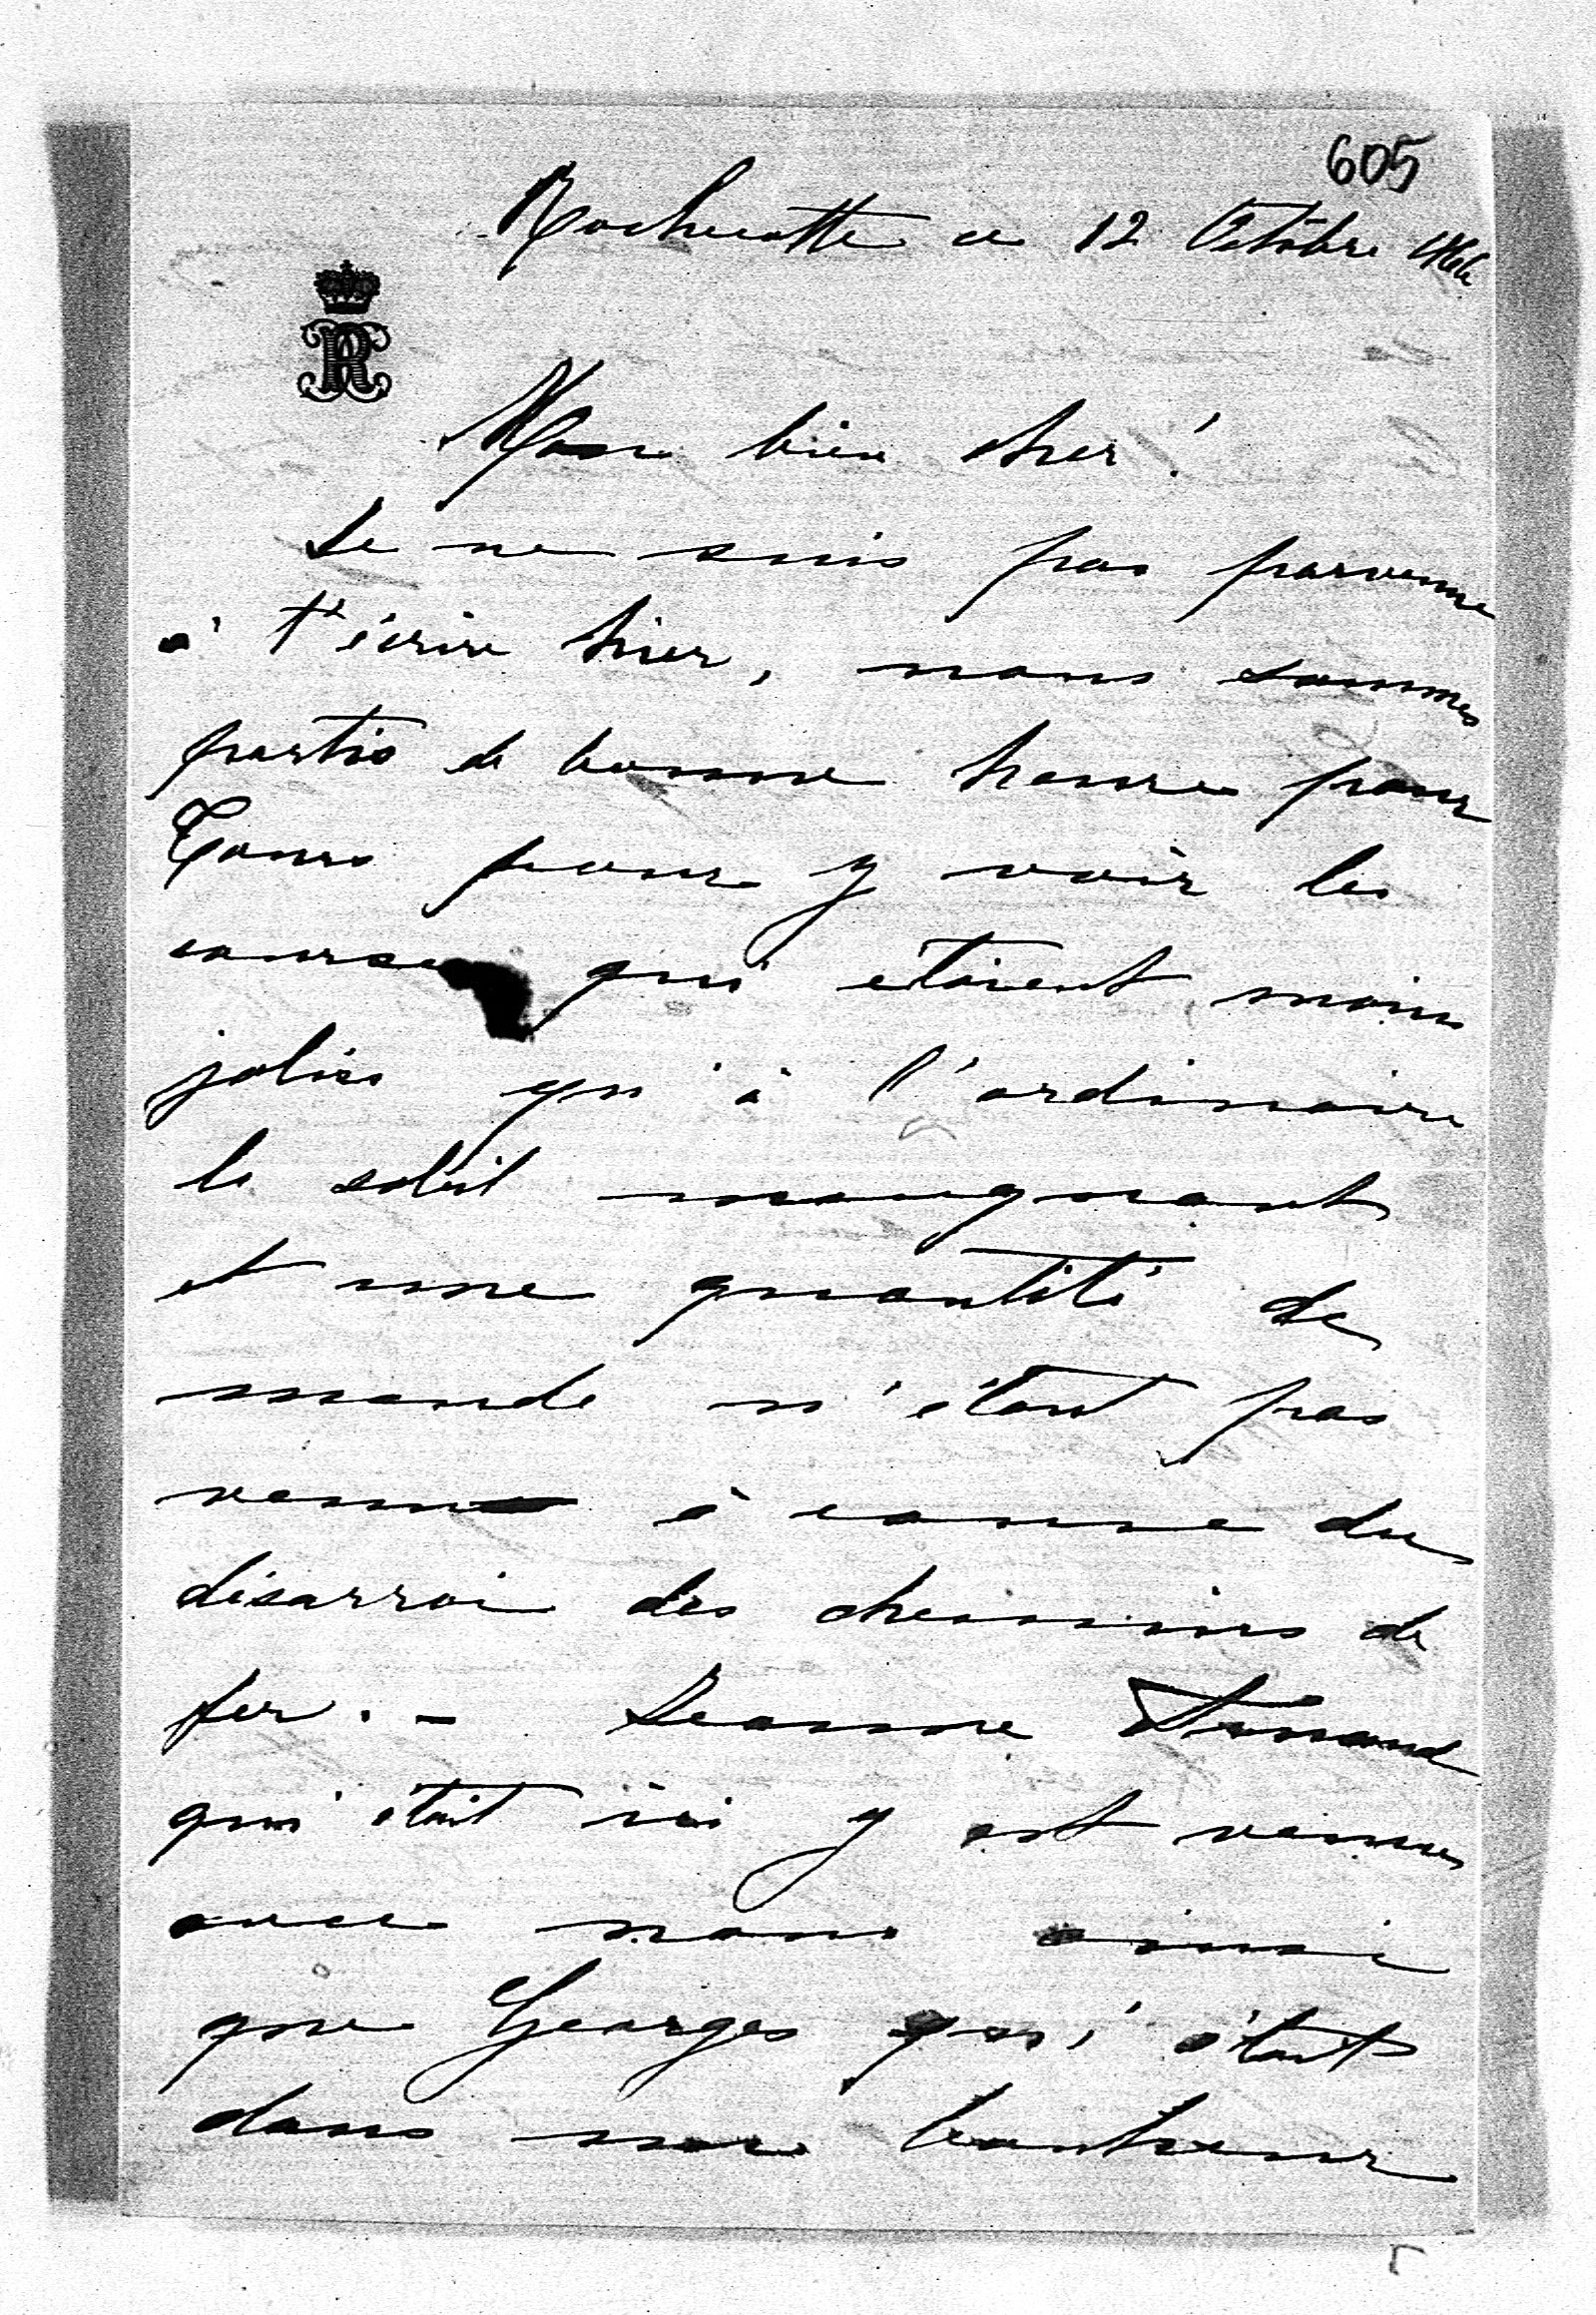 605
Rochecotte ce 12 Octobre 1866
R
Mon bien cher!
Je ne suis pas parvenue
à t'écrire hier, nous sommes
partis de bonne heure pour
Tours pour y voir les
courses qui étoient moins
jolies qu'à l'ordinaire
le soleil manquant
et une quantité de
monde n'étant pas
venu à cause du
désarroi des chemins de
fer. - Jeanne
qui était ici y est venue
avec nous ainsi
que Georges qui était
dans son bonheur